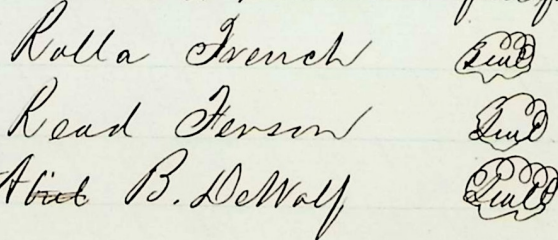 Rolla French Seal
Read Ferson Seal
B. DeWolf Seal